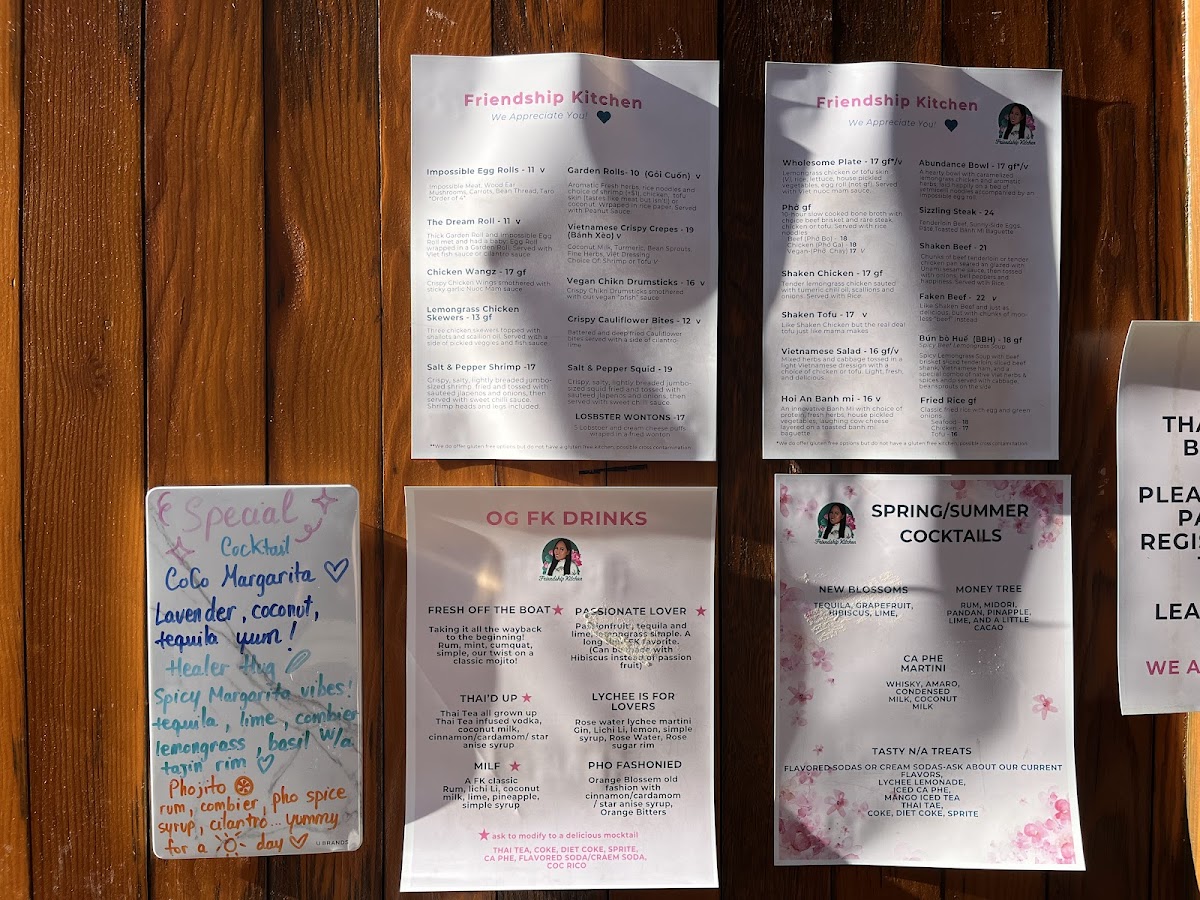 Friendship Kitchen
We Appreciate You!
Impossible Egg Rolls - 11 v
Impossible Meat, Wood Ear
Mushrooms, Carrots, Bean Thread, Taro
*Order of 4*
The Dream Roll - 11 v
Thick Garden Roll and Impossible Egg
Roll met and had a baby. Egg Roll
wrapped in a Garden Roll. Served with
Viet fish sauce or cilantro sauce
Chicken Wangz - 17 gf
Crispy Chicken Wings smothered with
sticky garlic Nuoc Mam sauce
Lemongrass Chicken
Skewers - 13 gf
Three chicken skewers topped with
shallots and scallion oil. Served with a
side of pickled veggies and fish sauce
Salt & Pepper Shrimp -17
Crispy, salty, lightly breaded jumbo-
sized shrimp, fried and tossed with
sautéed jlapenos and onions, then
served with sweet chilli sauce.
Shrimp heads and legs included.
Garden Rolls- 10 (Gói Cuốn) v
Aromatic Fresh herbs, rice noodles and
choice of shrimp (+$1), chicken, tofu
skin (tastes like meat but isn't!) or
coconut. Wrpaped in rice paper. Served
with Peanut Sauce.
Vietnamese Crispy Crepes - 19
(Bánh Xèo) v
Coconut Milk, Turmeric, Bean Sprouts,
Fine Herbs, Việt Dressing
Choice Of: Shrimp or Tofu V
Vegan Chikn Drumsticks - 16 v
Crispy Chikn Drumsticks smothered
with our vegan "phish" sauce
Crispy Cauliflower Bites - 12 v
Battered and deep fried Cauliflower
bites served with a side of cilantro-
lime
Salt & Pepper Squid - 19
Crispy, salty, lightly breaded jumbo-
sized squid fried and tossed with
sautéed jlapenos and onions, then
served with sweet chilli sauce.
LOSBSTER WONTONS -17
5 Lobster and cream cheese paté
wrapped in a fried wonton
**We do offer gluten free options but do not have a gluten free kitchen, possible cross contamination
Friendship Kitchen
We Appreciate You!
Friendship Kitchen
Wholesome Plate - 17 gf*/v
Lemongrass chicken or tofu skin
(V), rice, lettuce, house pickled
vegetables, egg roll (not gf). Served
with Viet nuoc mam sauce.
Phở gf
10-hour slow cooked bone broth with
choice beef brisket and rare steak,
chicken or tofu. Served with rice
noodles
Beef (Phở Bò) - 18
Chicken (Phở Gà) - 18
Vegan (Phở Chay) 17 V
Shaken Chicken - 17 gf
Tender lemongrass chicken sauted
with tumeric chili oil, scallions and
onions. Served with Rice.
Shaken Tofu - 17 v
Like Shaken Chicken but the real dear
tofu just like mama makes
Vietnamese Salad - 16 gf/v
Mixed herbs and cabbage tossed in a
light Vietnamese dressign with a
choice of chicken or tofu. Light, fresh,
and delicious
Hoi An Banh mi - 16 v
An innovative Banh Mi with choice of
protein, fresh herbs, house pickled
vegetables, laughing cow cheese
layered on a toasted banh mi
baguette
Abundance Bowl - 17 gf*/v
A hearty bowl with caramelized
lemongrass chicken and aromatic
herbs, laid happily on a bed of
vermicelli noodles accompanied by an
impossible egg roll
Sizzling Steak - 24
Tenderloin Beef, Sunny-side Eggs,
Paté Toasted Banh Mi Baguette
Shaken Beef - 21
Chunks of beef tenderloin or tender
chicken pan seared an glazed with
Umami sesame sauce, then tossed
with onions, bell peppers and
happiness. Served with Rice.
Faken Beef - 22 v
Like Shaken Beef and just as
delicious, but with chunks of mooless
"beef" instead
Bún bò Huế (BBH) - 18 gf
Spicy Beef Lemongrass Soup
Spicy Lemongrass Soup with beef
brisket sliced tenderloin, sliced beef
shank, Vietnamese ham, and a
special combo of native viet herbs &
spices and served with cabbage,
beansprouts on the side
Fried Rice gf
Classic fried rice with egg and green
onions
Seafood - 18
Chicken - 17
Tofu - 16
*We do offer gluten free options but do not have a gluten free kitchen, possible cross contamination
Special
Cocktail
CoCo Margarita
Lavender, coconut,
tequila yum!
Healer Hug
Spicy Margarita vibes!
tequila, lime, combier
lemongrass, basil w/a
tajin rim
Phojito
rum, combier, pho spice
syrup, cilantro... yummy
for a day
U BRANDS
OG FK DRINKS
Friendship Kitchen
FRESH OFF THE BOAT
Taking it all the wayback
to the beginning!
Rum, mint, cumquat,
simple, our twist on a
classic mojito!
PASSIONATE LOVER
Passionfruit, tequila and
lime, lemongrass simple. A
long time FK favorite.
(Can be made with
Hibiscus instead of passion
fruit)
THAI'D UP
Thai Tea all grown up
Thai Tea infused vodka,
coconut milk,
cinnamon/cardamom/ star
anise syrup
LYCHEE IS FOR
LOVERS
Rose water lychee martini
Gin, Lichi Li, lemon, simple
syrup, Rose Water, Rose
sugar rim
MILF
A FK classic
Rum, lichi Li, coconut
milk, lime, pineapple,
simple syrup
PHO FASHIONED
Orange Blossem old
fashion with
cinnamon/cardamom
/ star anise syrup,
Orange Bitters
ask to modify to a delicious mocktail
THAI TEA, COKE, DIET COKE, SPRITE,
CA PHE, FLAVORED SODA/CRAEM SODA,
COC RICO
Friendship Kitchen
SPRING/SUMMER
COCKTAILS
NEW BLOSSOMS
TEQUILA, GRAPEFRUIT,
HIBISCUS, LIME,
MONEY TREE
RUM, MIDORI,
PANDAN, PINAPPLE,
LIME, AND A LITTLE
CACAO
CA PHE
MARTINI
WHISKY, AMARO,
CONDENSED
MILK, COCONUT
MILK
TASTY N/A TREATS
FLAVORED SODAS OR CREAM SODAS-ASK ABOUT OUR CURRENT
FLAVORS,
LYCHEE LEMONADE,
ICED CA PHE,
MANGO ICED TEA
THAI TAE,
COKE, DIET COKE, SPRITE
THA
B
PLEA
PA
REGIS
LEA
WE A